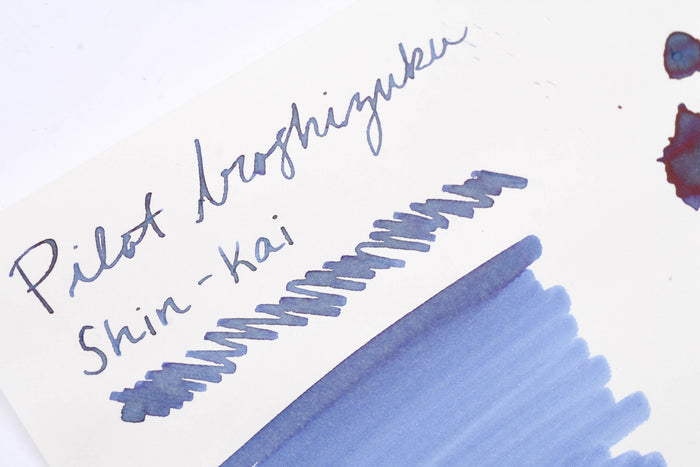 Pilot Iroshizuku
Shin-Kai